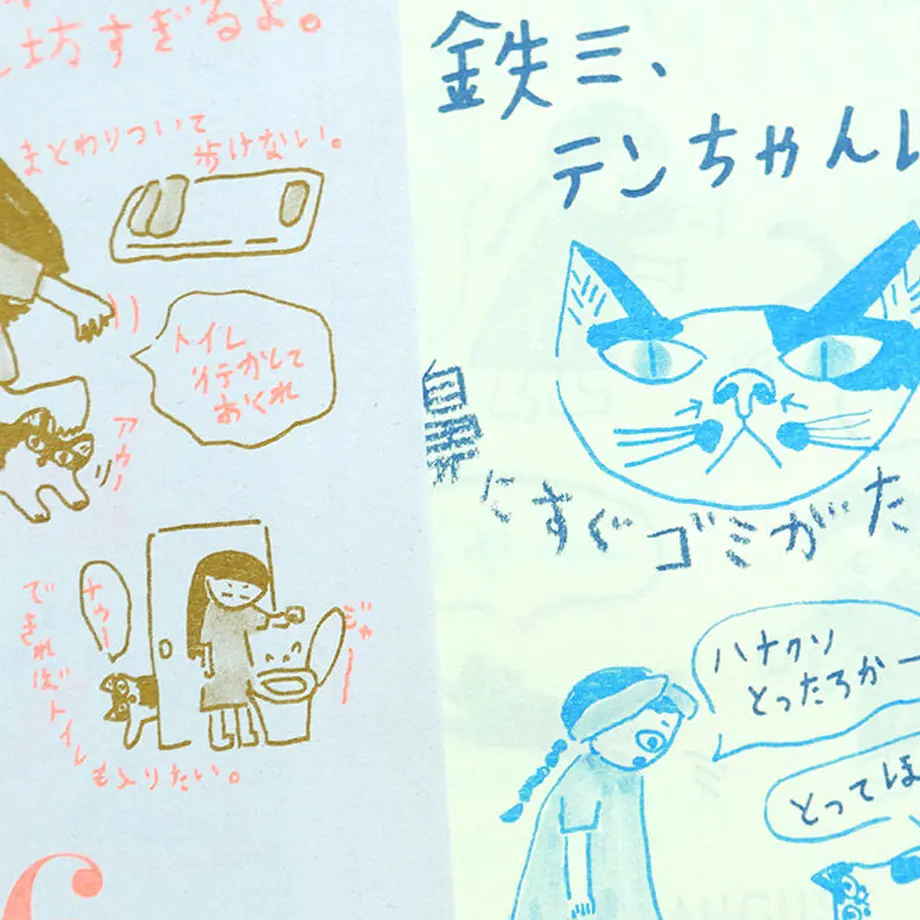 ん坊すぎるよ。
まとわりついて
歩けない。
トイレ
行かして
おくれ
アウノ
ナウー
じゃー
できればトイレ
も入りたい。
鉄三、
テンちゃんは
鼻にすぐゴミがた
ハナクソ
とったろかー
とってほ